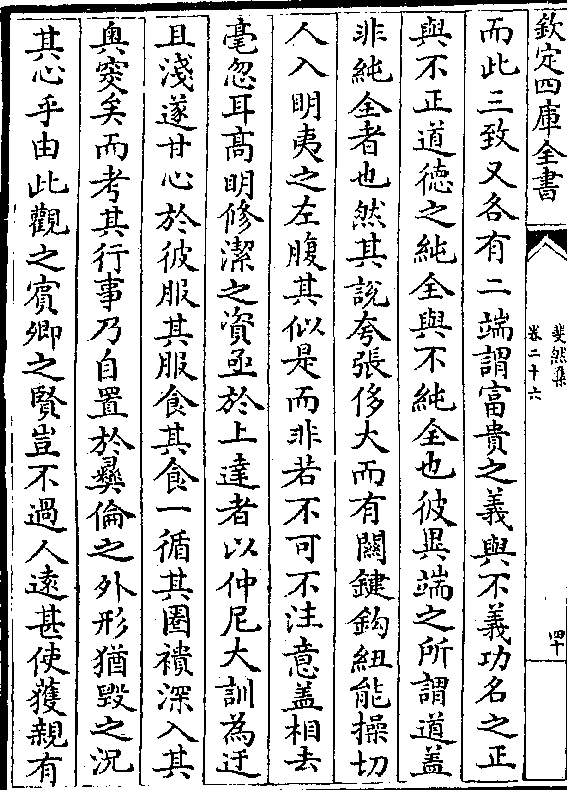 欽定四庫全書
斐然集
卷二十六
四十
而此三致又各有二端謂富貴之義與不義功名之正
與不正道德之純全與不純全也彼異端之所謂道盖
非純全者也然其說夸張侈大而有關鍵鈎紐能操切
人入明夷之左腹其似是而非若不可不注意盖相去
毫忽耳髙明修潔之資亟於上達者以仲尼大訓為迂
且淺遂甘心於彼服其服食其食一循其圈襀深入其
奥窔矣而考其行事乃自置於彛倫之外形猶毀之況
其心乎由此觀之賔卿之賢豈不過人遠甚使獲親有